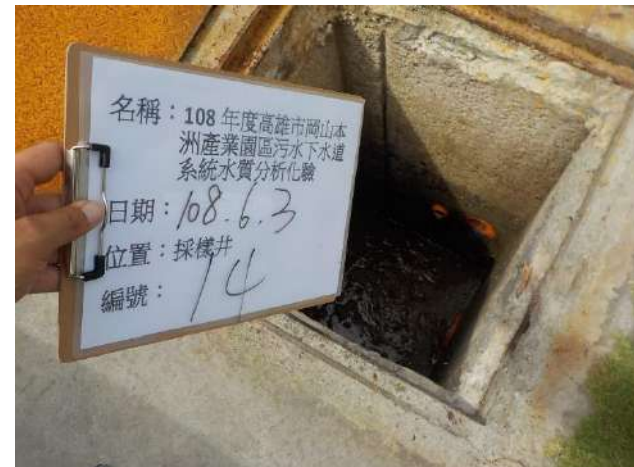 名稱：108 年度高雄市岡山本
洲產業園區污水下水道
系統水質分析化驗
日期：108.6.3
位置：採樣井
編號：14